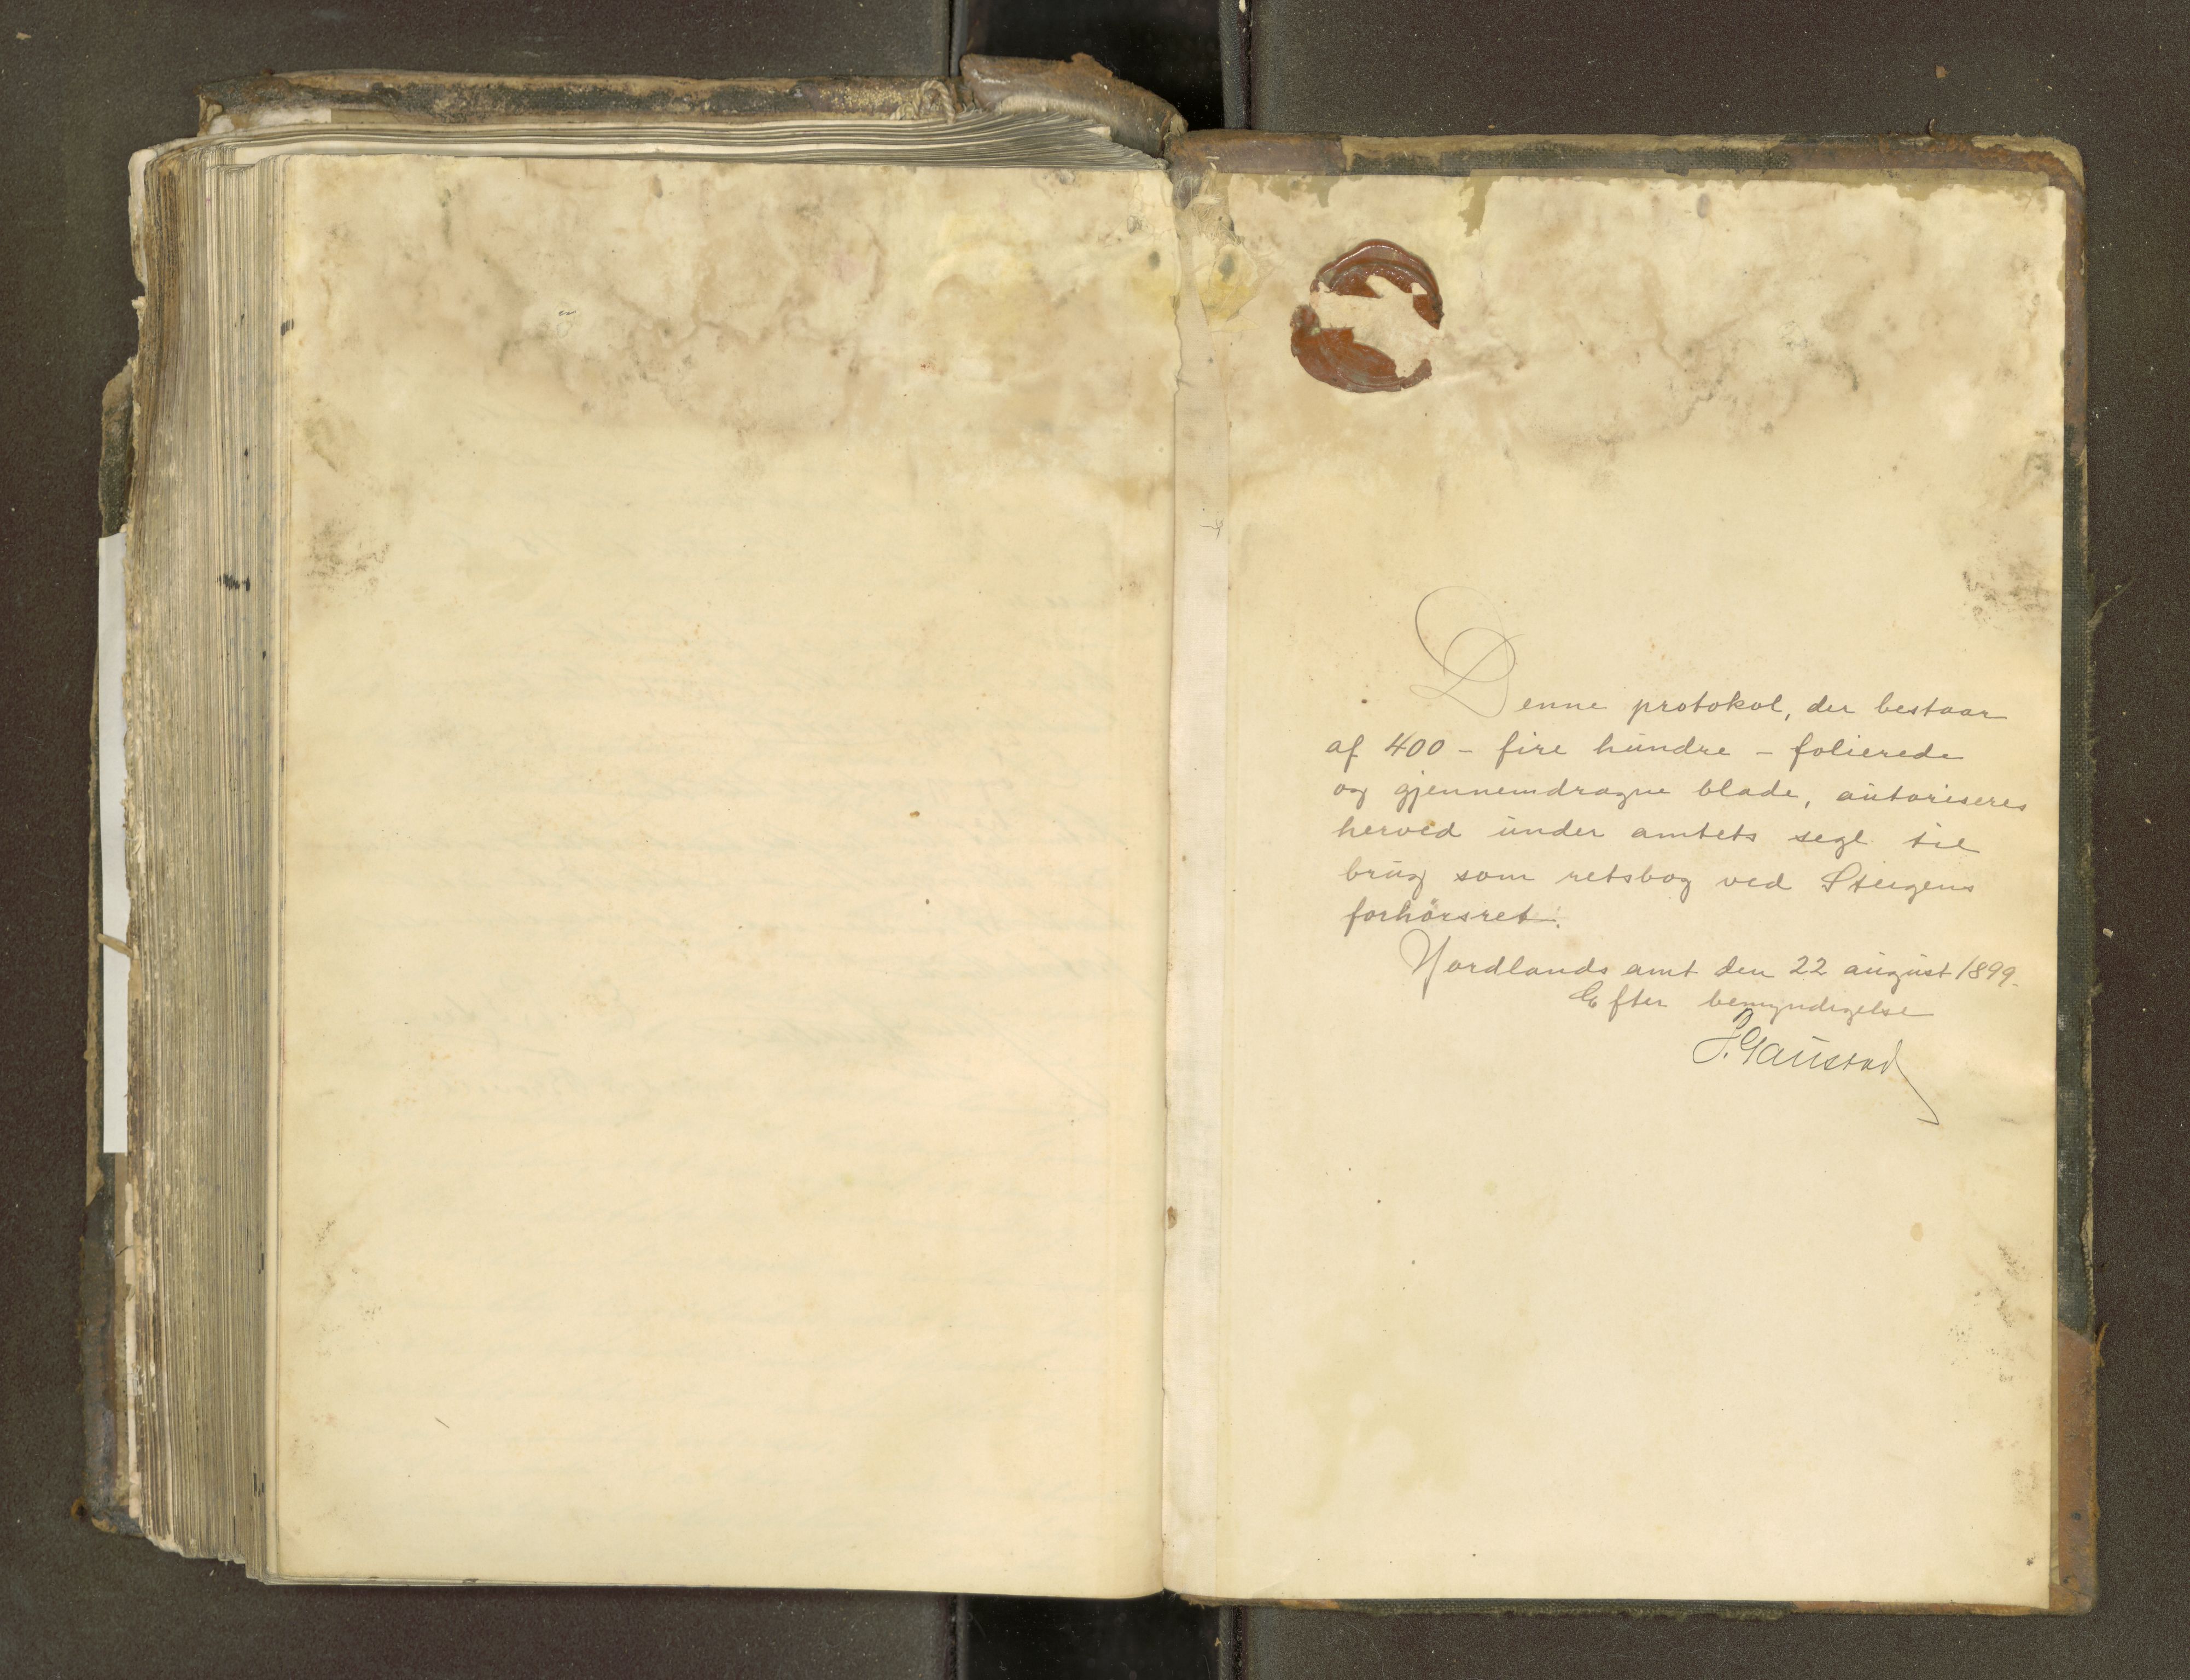 Denne protokol, der bestaar
af 400 - fire hundre - folierede
og gjennemdragne blade, autoriseres
herved under amtets segl til
brug som retsbog ved Steigens
forhørsret.
Nordlands amt den 22 august 1899.
Efter bemyndigelse
P. Gaustad